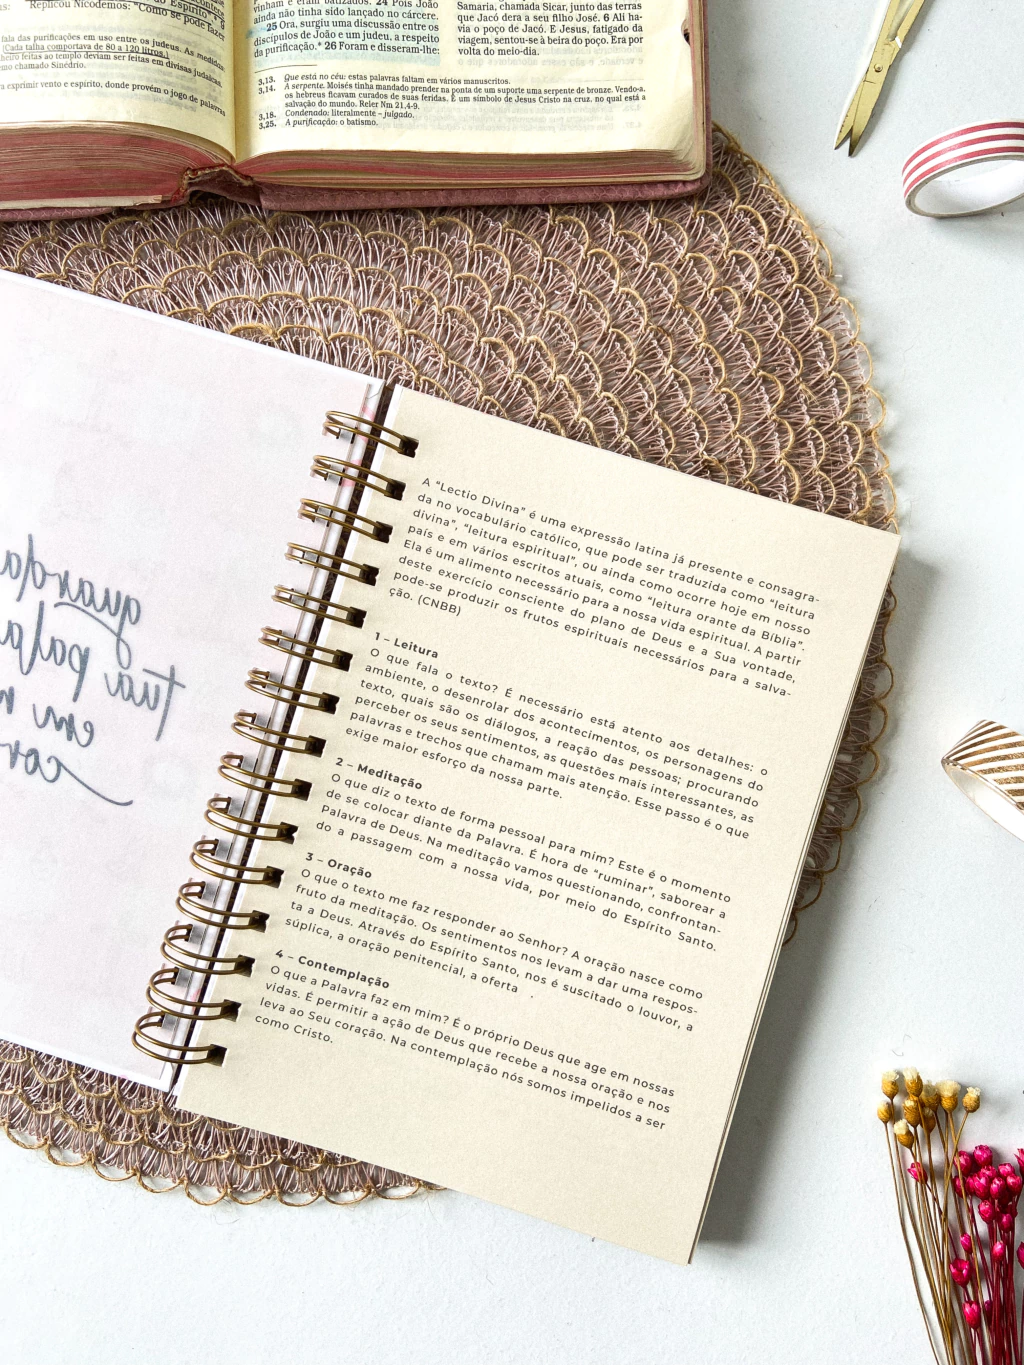 Replicou Nicodemos: "Como se pode fazer
fala das purificações em uso entre os judeus. As medidas
(Cada talha comportava de 80 a 120 litros.)
feitas ao templo deviam ser feitas em divisas judaicas.
chamado Sinédrio.
a exprimir vento e espírito, donde provém o jogo de palavras
vinham e eram batizados. 24 Pois João
ainda não tinha sido lançado no cárcere.
25 Ora, surgiu uma discussão entre os
discípulos de João e um judeu, a respeito
da purificação.* 26 Foram e disseram-lhe:
Samaria, chamada Sicar, junto das terras
que Jacó dera a seu filho José. 6 Ali ha-
via o poço de Jacó. E Jesus, fatigado da
viagem, sentou-se à beira do poço. Era por
volta do meio-dia.
3,13. Que está no céu: estas palavras faltam em vários manuscritos.
3,14. A serpente. Moisés tinha mandado prender na ponta de um suporte uma serpente de bronze. Vendo-a,
os hebreus ficavam curados de suas feridas. É um símbolo de Jesus Cristo na cruz, no qual está a
salvação do mundo. Reler Nm 21,4-9.
3,18. Condenado: literalmente – julgado.
3,25. A purificação: o batismo.
guarda
tua pala
em m
cor
A "Lectio Divina" é uma expressão latina já presente e consagra-
da no vocabulário católico, que pode ser traduzida como "leitura
divina", "leitura espiritual", ou ainda como ocorre hoje em nosso
país e em vários escritos atuais, como "leitura orante da Bíblia".
Ela é um alimento necessário para a nossa vida espiritual. A partir
deste exercício consciente do plano de Deus e a Sua vontade,
pode-se produzir os frutos espirituais necessários para a salva-
ção. (CNBB)
1 – Leitura
O que fala o texto? É necessário está atento aos detalhes: o
ambiente, o desenrolar dos acontecimentos, os personagens do
texto, quais são os diálogos, a reação das pessoas; procurando
perceber os seus sentimentos, as questões mais interessantes, as
palavras e trechos que chamam mais atenção. Esse passo é o que
exige maior esforço da nossa parte.
2 – Meditação
O que diz o texto de forma pessoal para mim? Este é o momento
de se colocar diante da Palavra. É hora de "ruminar", saborear a
Palavra de Deus. Na meditação vamos questionando, confrontan-
do a passagem com a nossa vida, por meio do Espírito Santo.
3 – Oração
O que o texto me faz responder ao Senhor? A oração nasce como
fruto da meditação. Os sentimentos nos levam a dar uma respos-
ta a Deus. Através do Espírito Santo, nos é suscitado o louvor, a
súplica, a oração penitencial, a oferta
4 – Contemplação
O que a Palavra faz em mim? É o próprio Deus que age em nossas
vidas. É permitir a ação de Deus que recebe a nossa oração e nos
leva ao Seu coração. Na contemplação nós somos impelidos a ser
como Cristo.